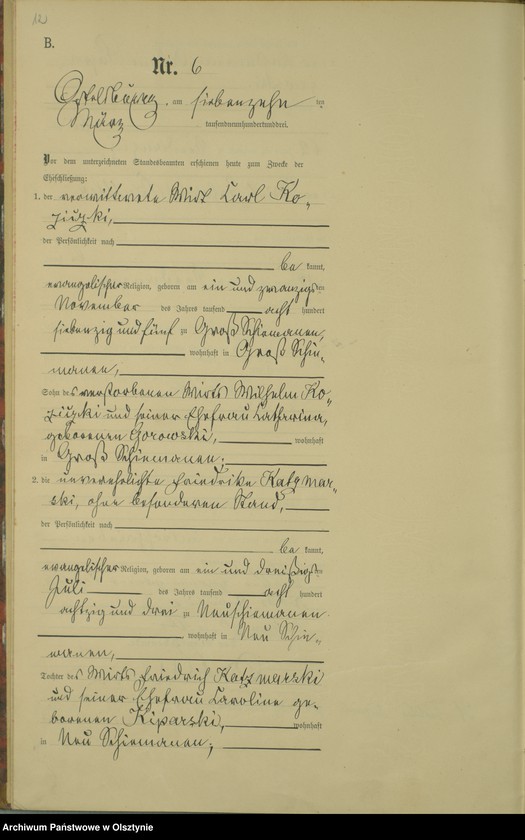 12
B.
Nr. 6
Ortelsburg, am siebenzehn ten
März tausendneunhundertunddrei.
Vor dem unterzeichneten Standesbeamten erschienen heute zum Zwecke der
Eheschließung:
1. der verwittwete Wirt Carl Ko-
der Persönlichkeit nach
be kannt,
evangelischer Religion, geboren am ein und zwanzigsten
November des Jahres tausend acht hundert
siebenzig und fünf zu Groß Schiemanen,
wohnhaft in Groß Schie-
manen,
Sohn des verstorbenen Wirts Wilhelm Ko-
und seiner Ehefrau Catharina,
geborenen Gorowski, wohnhaft
in Groß Schiemanen.
2. die unverehelichte Friedrike Katzmar-
ski, ohne besonderen Stand,
der Persönlichkeit nach
be kannt,
evangelischer Religion, geboren am ein und dreißigsten
Juli des Jahres tausend acht hundert
achtzig und drei zu Neuschiemanen
wohnhaft in Neu Schie-
manen,
Tochter des Wirts Friedrich Katzmarski
und seiner Ehefrau Caroline ge-
borenen Kiparski, wohnhaft
in Neu Schiemanen;
Archiwum Państwowe w Olsztynie